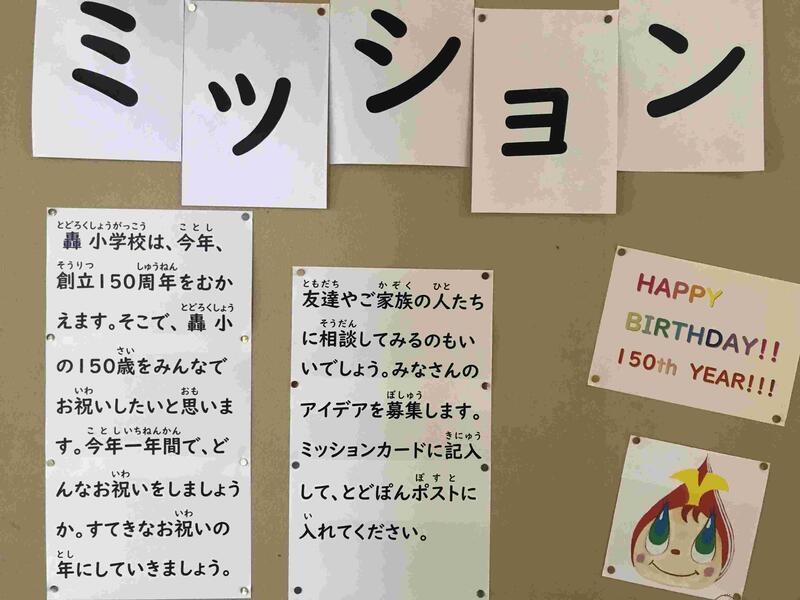 ミッション
轟小学校は、今年、
創立150周年をむか
えます。そこで、轟小
の150歳をみんなで
お祝いしたいと思いま
す。今年一年間で、ど
んなお祝いをしましょう
か。すてきなお祝いの
年にしていきましょう。
友達やご家族の人たち
に相談してみるのもい
いでしょう。みなさんの
アイデアを募集します。
ミッションカードに記入
して、とどぽんポストに
入れてください。
HAPPY
BIRTHDAY!!
150th YEAR!!!